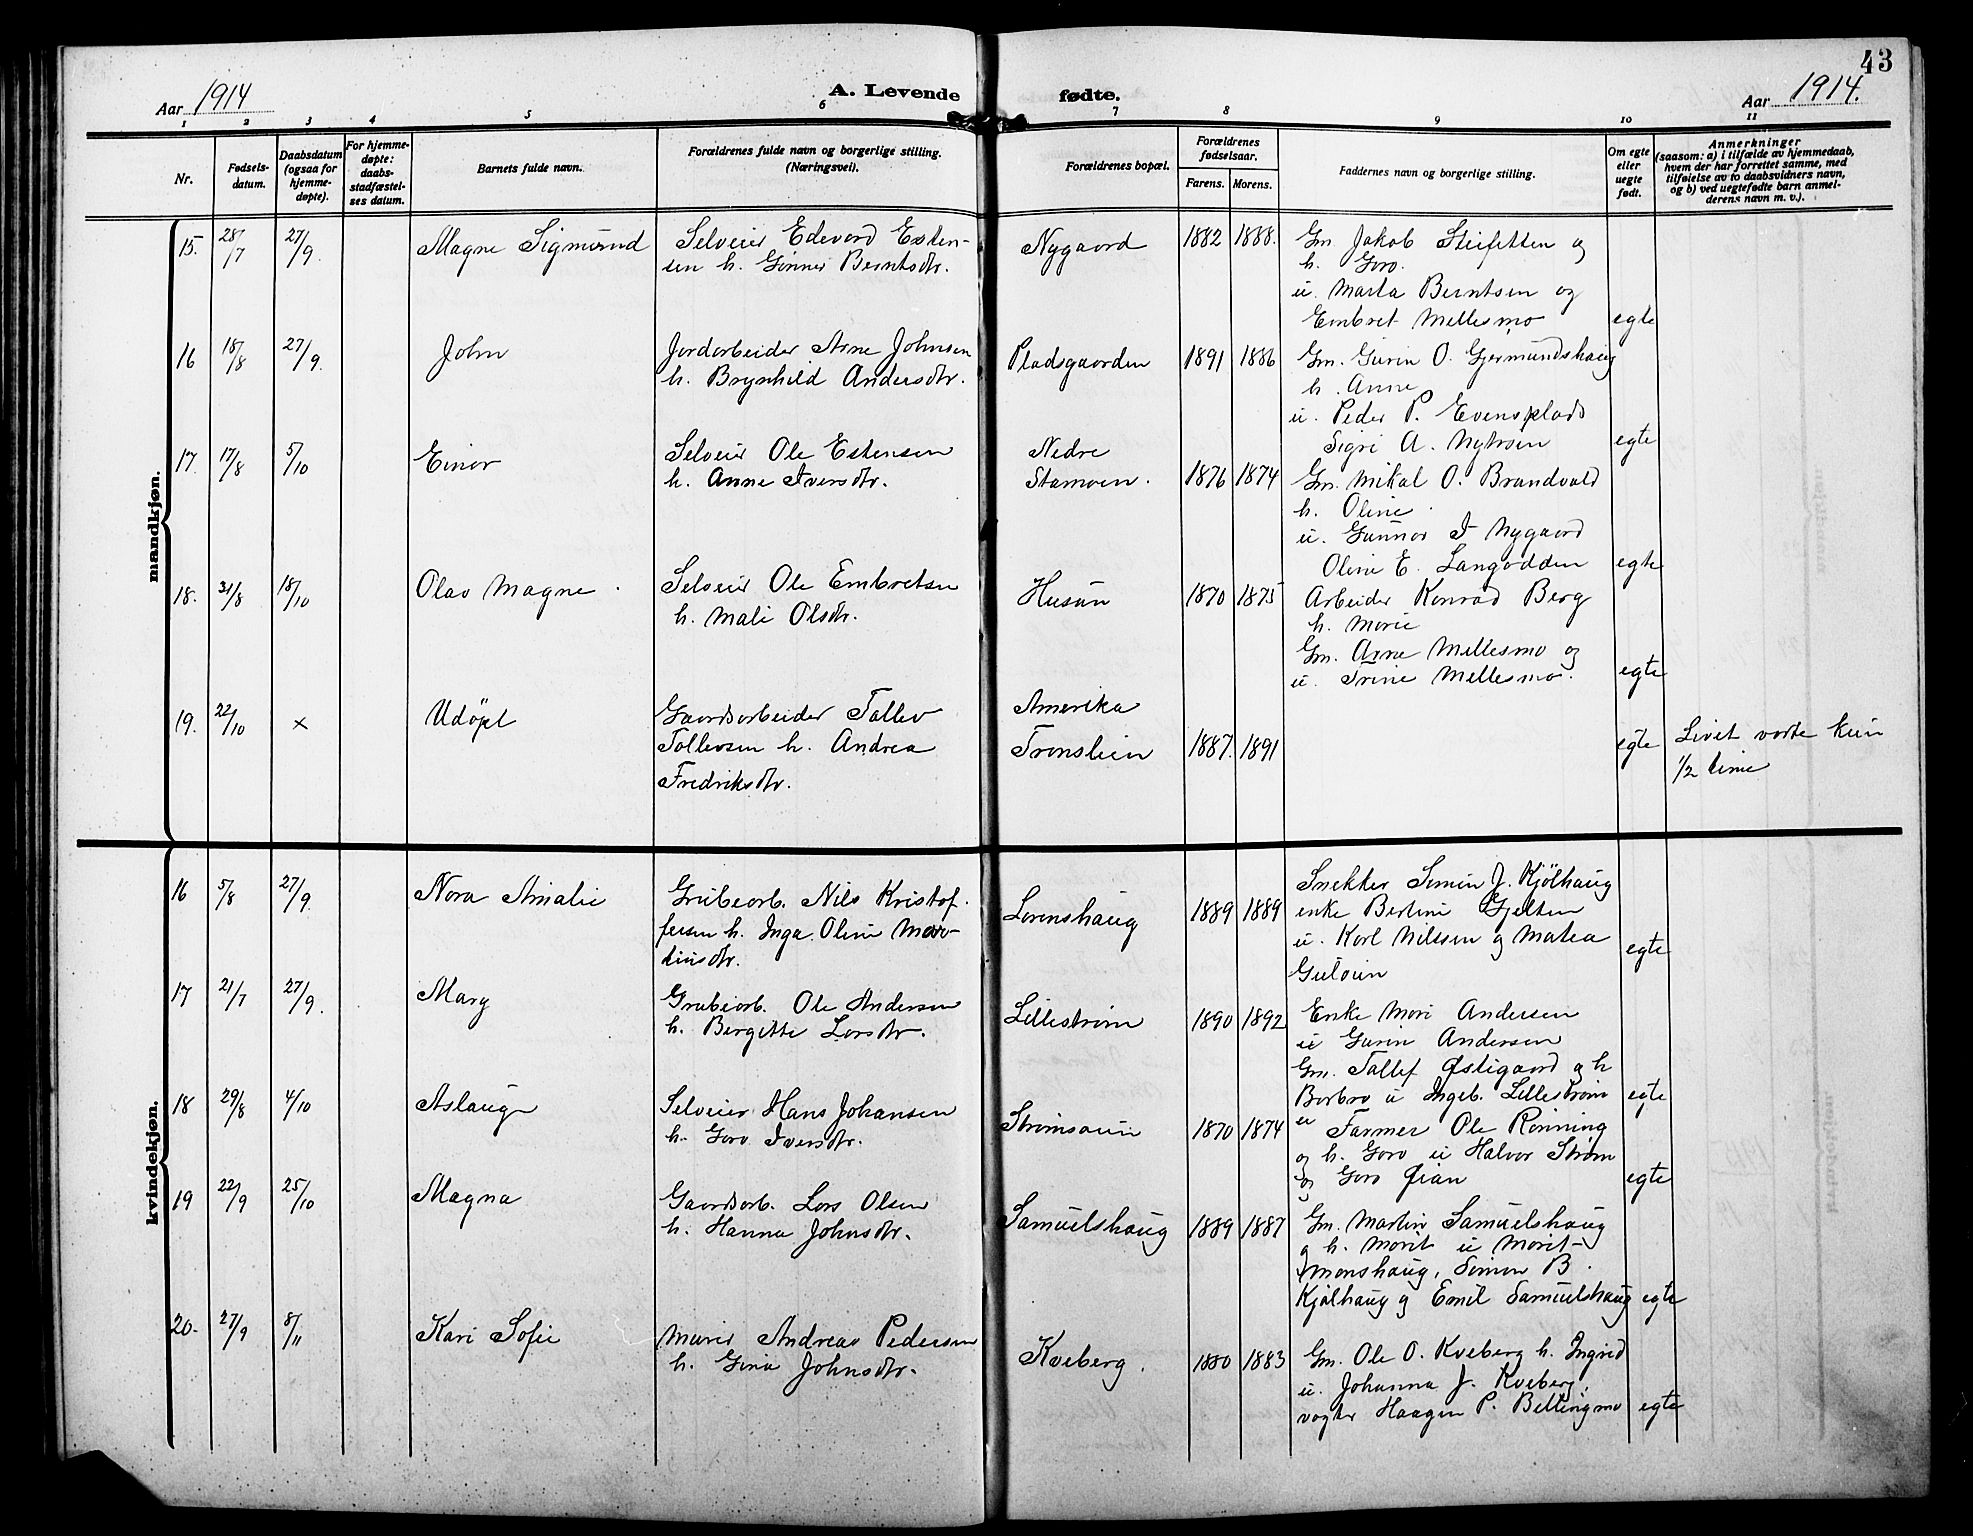 43
Aar 1914
A. Levende
fødte.
Aar 1914.
1 2 3 4 5 6 7 8 9 10 11
Nr.
Fødsels-
datum.
Daabsdatum
(ogsaa for
hjemme-
døpte).
For hjemme-
døpte:
daabs-
stadfæstel-
ses datum.
Barnets fulde navn.
Forældrenes fulde navn og borgerlige stilling.
(Næringsvei).
Forældrenes bopæl.
Forældrenes
fødselsaar.
Farens. Morens.
Faddernes navn og borgerlige stilling.
Om egte
eller
uegte
født.
Anmerkninger
(saasom: a) i tilfælde av hjemmedaab,
hvem der har forrettet samme, med
tilføielse av to daabsvidners navn,
og b) ved uegtefødte barn anmel-
derens navn m. v.).
mandkjøn.
15. 28/7 27/9. Magne Sigmund
Selveier Edevard Esten-
sen h. Gunner Berntsdtr.
Nygaard 1882 1888.
Gm Jakob Steifetten og
h. Goro.
u. Marta Berntsen og
Embret Mellesmo egte
16 18/8 27/9. John
Jordarbeider Arne Johnsen
h. Brynhild Andersdtr.
Pladsgaarden 1891 1886
Gm. Gurin O. Gjermundshaug
h. Anne
u. Peder P. Evensplads
Sigri A. Nytrøen egte
17. 17/8 5/10 Einar
Selveier Ole Estensen
h. Anne Iversdtr.
Nedre
Stamoen. 1876 1874
Gm. Mikal O. Brandvold
h. Oline.
u. Gunnar I Nygaard
Oline E. Langodden egte
18. 31/8 18/10 Olav Magne.
Selveier Ole Embretsen
h. Mali Olsdtr.
Husum 1870 1875
Arbeider Konrad Berg
h. Marie
Gm. Arne Mellesmo og
u. Trine Mellesmo. egte
19. 22/10 × Udöpt
Gaardsarbeider Tallev
Tollevsen h. Andrea
Fredriksdtr.
Amerika
Tronslien 1887. 1891
egte
Livet varte kun
1/2 time
kvindekjøn.
16 5/8 27/9. Nora Amalie
Grubearb. Nils Kristof-
fersen h. Inga Oline Mar-
tinsdtr.
Lorenshaug 1889 1889
Snekker Simen J. Kjölhaug
enke Bertine Gjelten
u. Karl Nilssen og Matea
Guloien egte
17 21/7 27/9. Mary
Grubearb. Ole Andersen
h. Bergitte Larsdtr.
Lillestrøm 1890 1892
Enke Mari Andersen
u Gurin Andersen
Gm. Tallef Østigaard og h
Barbro u Ingeb. Lillestrøm egte
18 29/8 4/10 Aslaug
Selveier Hans Johansen
h. Goro Iversdtr.
Strømsøien 1870 1874
Farmer Ole Rønning
og h. Goro u Halvor Strøm
og Goro Øian egte
19 22/9 25/10 Magna
Gaardsarb. Lars Olsen
h. Hanna Johnsdtr.
Samuelshaug 1889 1887
Gm. Martin Samuelshaug
og h. Marit u Marit
Monshaug, Simen B.
Kjølhaug og Emil Samuelshaug egte
20. 27/9 8/11 Kari Sofie
Murer Andreas Pedersen
h. Gina Johnsdtr.
Kveberg. 1880 1883
Gm. Ole O. Kveberg h. Ingrid
u. Johanna J. Kveberg,
vogter Haagen P. Bellingmo egte